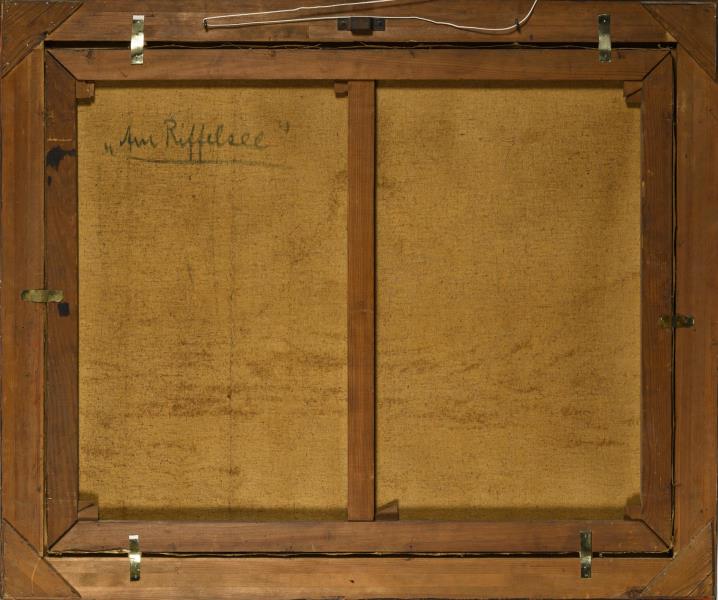 „Am Riffelsee"